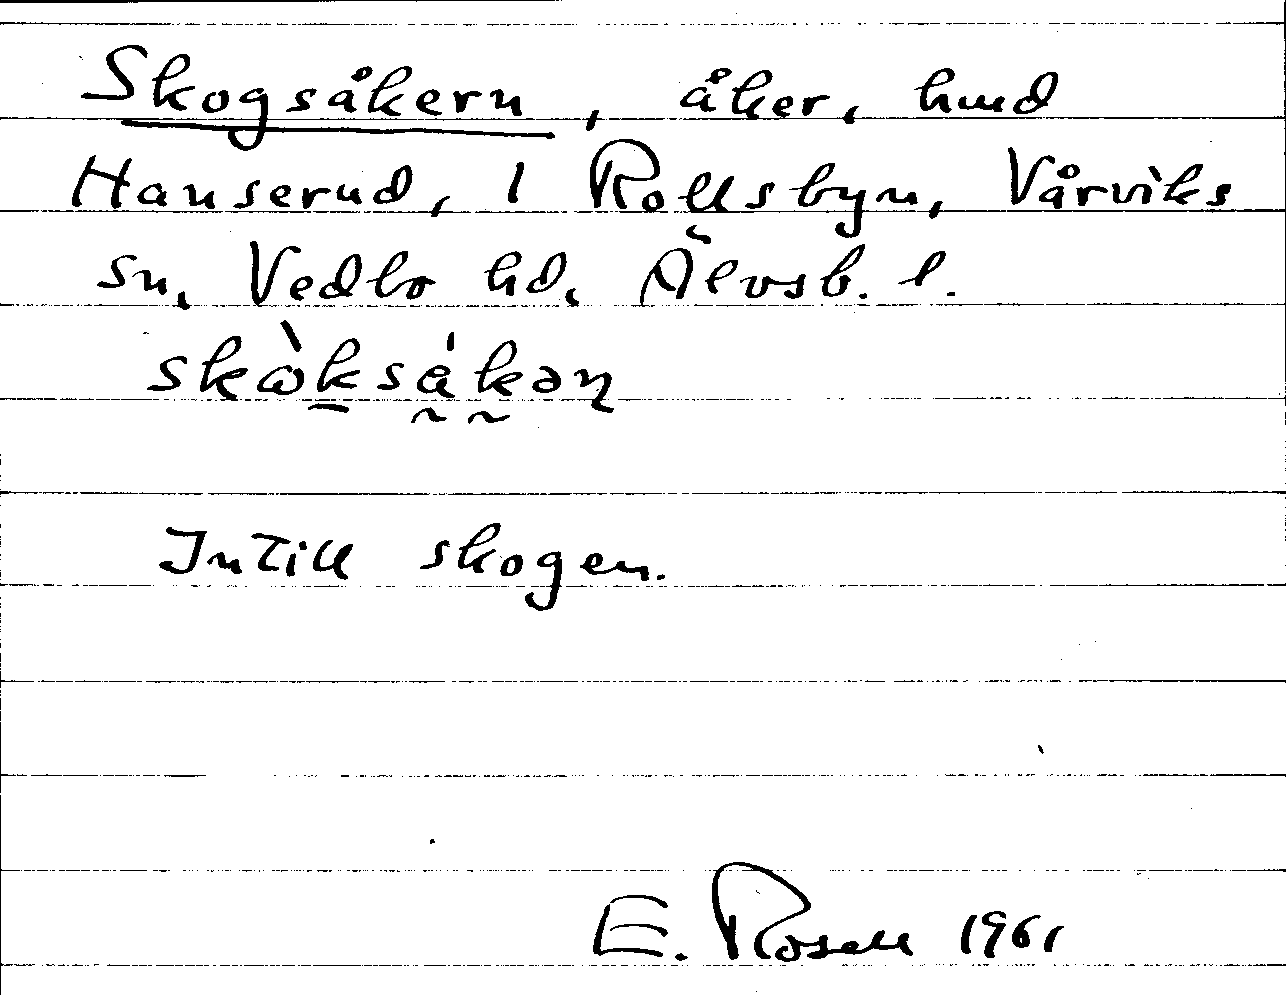 Skogsåkern, åker, hmd
Hanserud, 1 Rollsbyn, Vårviks
sn, Vedbo hd, Älvsb. l.
skòksåkəɳ
Intill skogen.
E. Rosell 1961